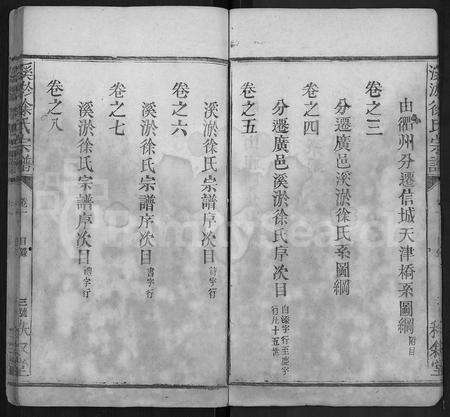 由衢州分遷信城天津橋系圖綱 附目
卷之三
分遷廣邑溪淤徐氏系圖綱
卷之四
分遷廣邑溪淤徐氏序次目 自濠字行至慶字行凡十五世
卷之五
溪淤徐氏宗譜序次目 詩字行
卷之六
溪淤徐氏宗譜序次目 書字行
卷之七
溪淤徐氏宗譜序次目 禮字行
卷之八
溪淤徐氏宗譜 卷一 目錄
溪淤徐氏宗譜
FamilySearch